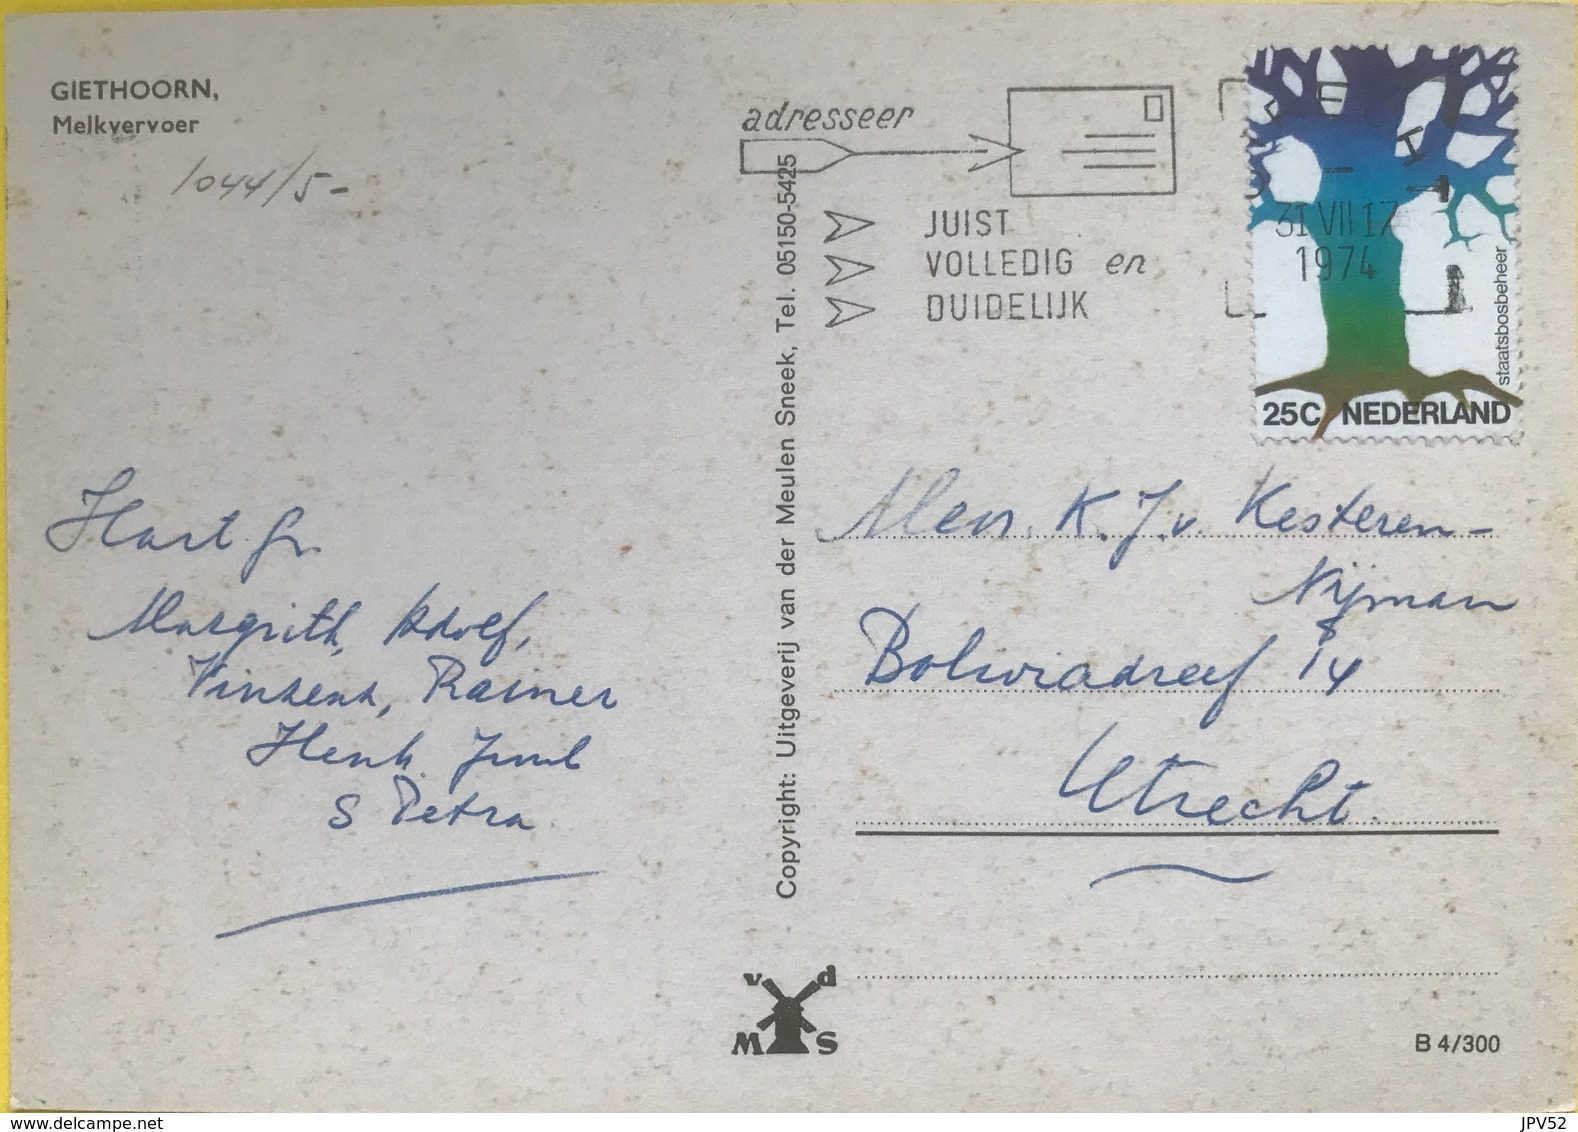 GIETHOORN,
Melkvervoer
1044/5-
adresseer
JUIST
VOLLEDIG en
DUIDELIJK
31 VII 17
1974
staatsbosbeheer
25C NEDERLAND
Copyright: Uitgeverij van der Meulen Sneek, Tel. 05150-5425
Hart. gr.
Margrith, Adolf,
Vinzenz, Rainer
Henk
& Petra
K. J. v. Kesteren-
Nijman
Boliviadreef
Utrecht.
v d
M S
B 4/300
www.delcampe.net
JPV52